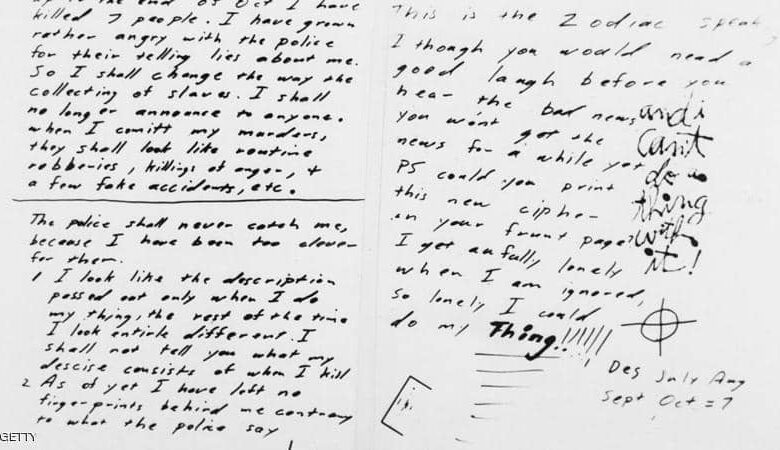 up to the end of Oct I have
killed 7 people. I have grown
rather angry with the police
for their telling lies about me.
So I shall change the way the
collecting of slaves. I shall
no longer announce to anyone.
when I comitt my murders,
they shall look like routine
robberies, killings of anger, +
a few fake accidents, etc.
The police shall never catch me,
because I have been too clever
for them.
1 I look like the description
passed out only when I do
my thing, the rest of the time
I look entirle different. I
shall not tell you what my
descise consists of when I kill
2 As of yet I have left no
fingerprints behind me contrary
to what the police say
This is the Zodiac speak
I though you would need a
good laugh before you
hear the bad news
you won't get the
news for a while yet
PS could you print
this new cipher
in your frunt page?
I get awfully lonely
when I am ignored,
so lonely I could
do my Thing!!!!!!
and i
can't
do a
thing
with
it!
Des July Aug
Sept Oct = 7
GETTY